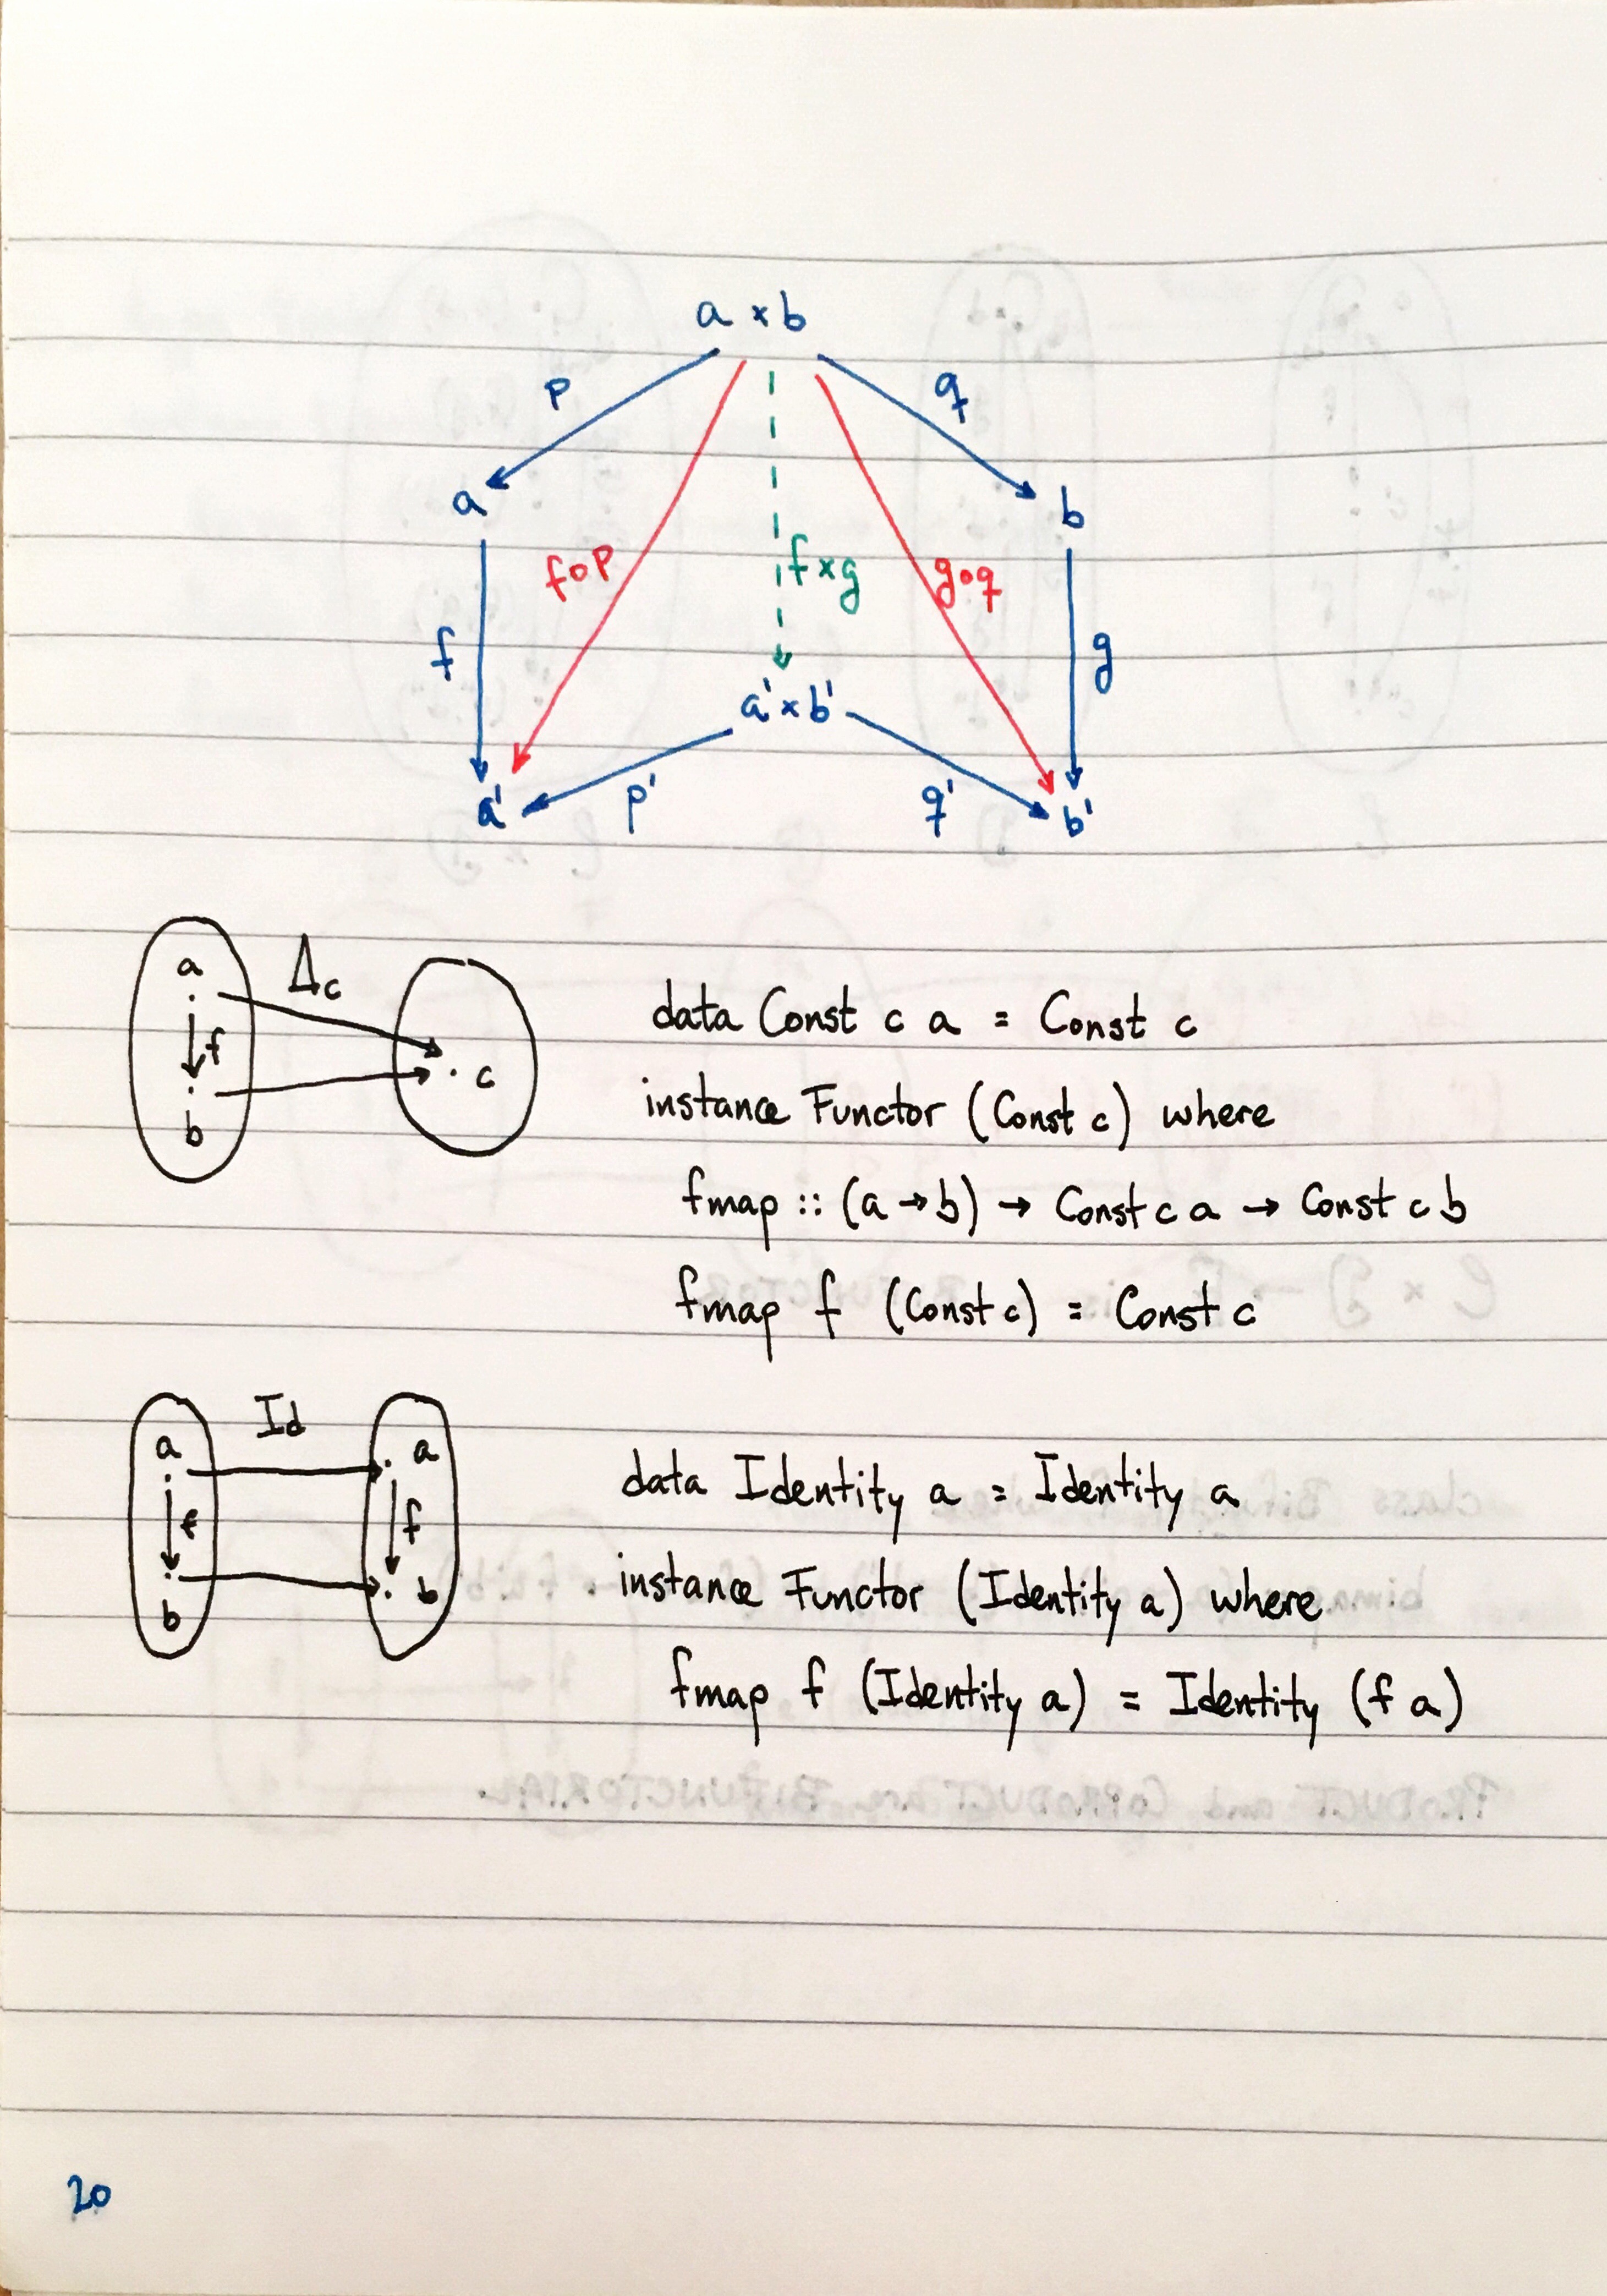 a × b
p
q
a
b
f∘p
f×g
g∘q
f
g
a'×b'
a'
p'
q'
b'
a
Δc
f
c
b
data Const c a = Const c
instance Functor (Const c) where
fmap :: (a → b) → Const c a → Const c b
fmap f (Const c) = Const c
Id
a
a
f
f
b
b
data Identity a = Identity a
instance Functor (Identity a) where
fmap f (Identity a) = Identity (f a)
PRODUCT and COPRODUCT are BIFUNCTORIAL.
20